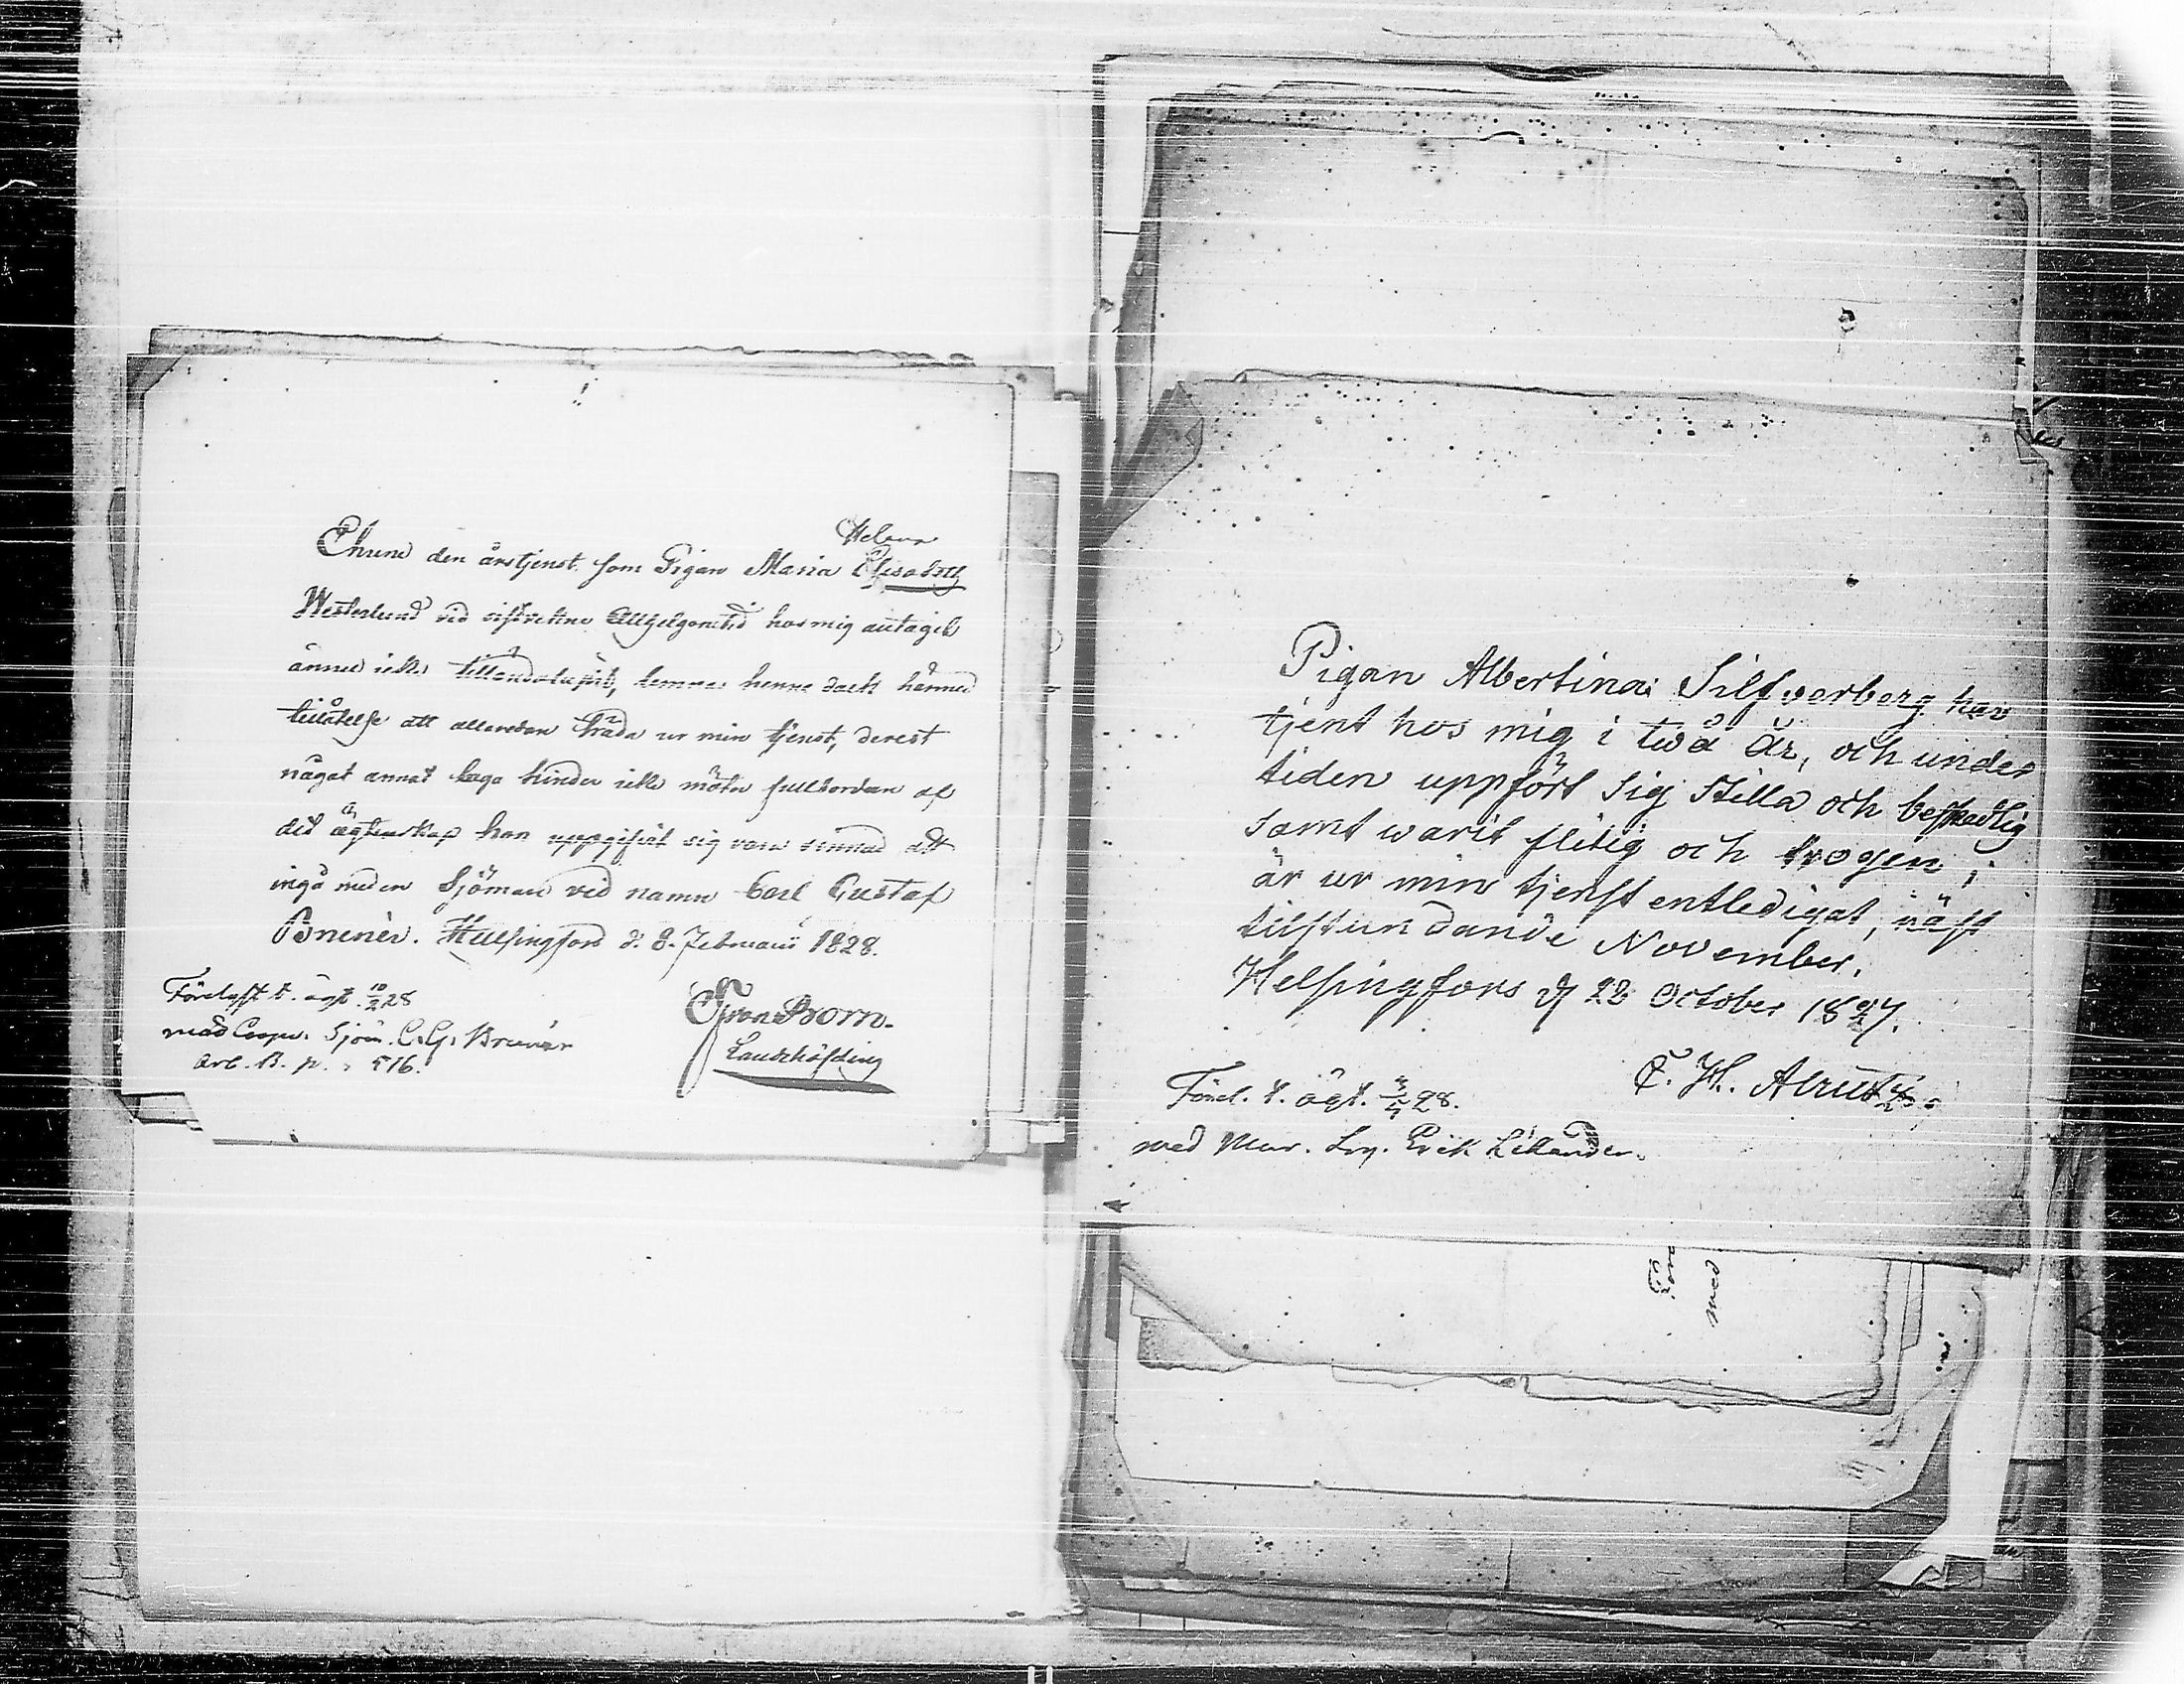 Helena
Ehuru den årstjenst som Pigan Maria Elisabeth
Westerlund vid sistvekne Allhelgonetid hos mig antagit
ännu icke tilländalupit, lemnas henne dock härmed
tillåtelse att allaredan träda ur min tjenst, derest
något annat laga hinder icke möter fullbordan af
det ägtenskap hon uppgifvit sig vara sinnad att
ingå med en Sjöman vid namn Carl Gustaf
Brenèr. Helsingfors d. 8. Februarii 1828.
G von Born.
Landshöfding
Förelyst t. ägt. 10/2 28
med Coopv. Sjöm. C. G. Brenér
Arb. B. p. 576.
Pigan Albertina Silfverberg har
tjent hos mig i twå År, och under
tiden uppfört sig Stilla och beskedlig
samt warit flitig och trogen;
är ur min tjenst entledigat, näst
tilstundande November.
Helsingfors d 22 October 1827.
C. H. Alrutz.
Förel. t. ägt. 28.
med Mur. Erik Lilander.
Före
med